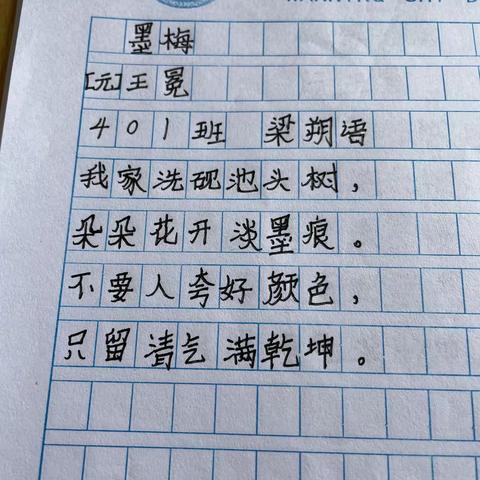 墨梅
[元]王冕
401班 梁朔语
我家洗砚池头树，
朵朵花开淡墨痕。
不要人夸好颜色，
只留清气满乾坤。